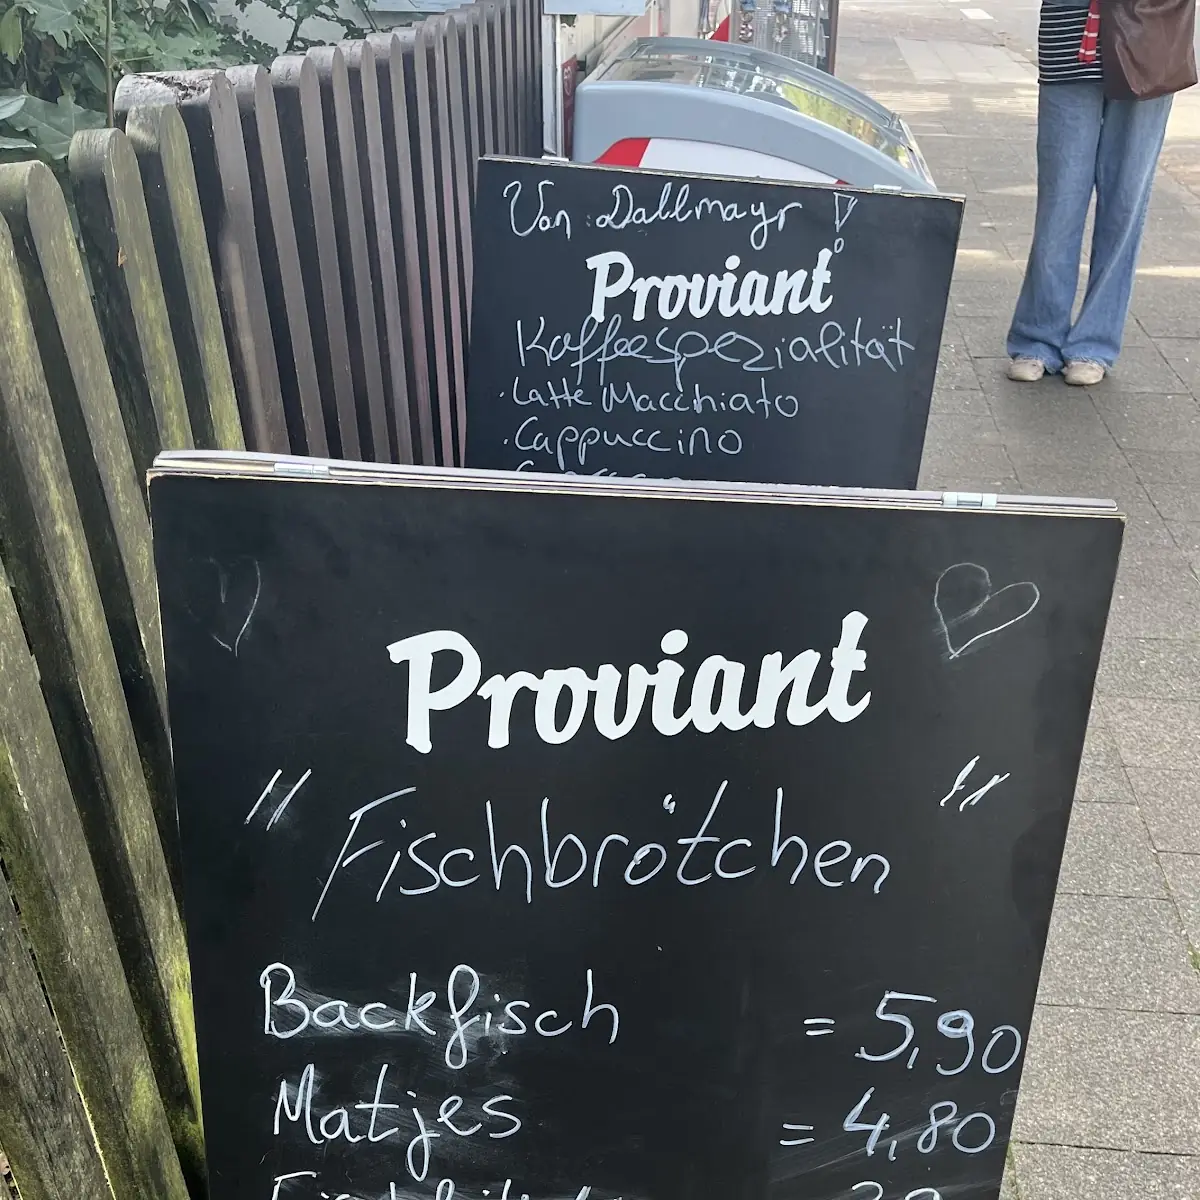 Von Dallmayr !
Proviant
Kaffeespezialität
· Latte Macchiato
· Cappuccino
Proviant
" Fischbrötchen "
Backfisch = 5,90
Matjes = 4,80